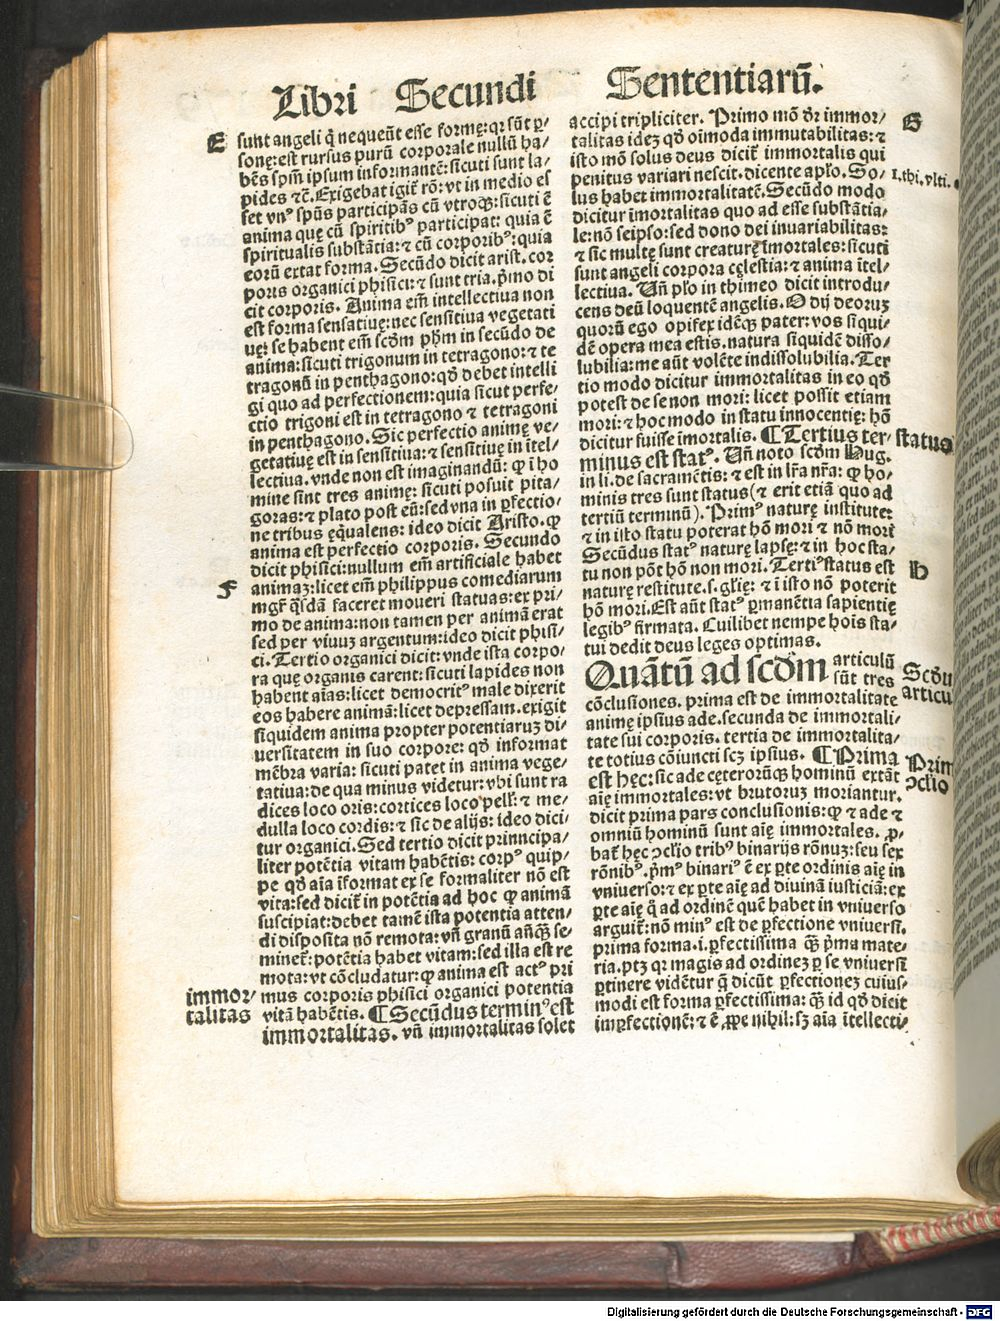 Libri Secundi Sententiarū.
E
sunt angeli q̄ nequeūt esse formę: qr sūt ꝑ⸗
sonę: est rursus purū corporale nullū ha⸗
bēs spm̄ ipsum informantē: sicuti sunt la⸗
pides ⁊c̄. Exigebat igit̄ rō: vt in medio es
set vnꝰ spūs participās cū vtroq̣: sicuti ē
anima quę cū spiritibꝰ participat: quia ē
spiritualis substātia: ⁊ cū corporibꝰ: quia
eorū extat forma. Secūdo dicit arist. cor
poris organici phisici: ⁊ sunt tria. p̄mo di
cit corporis. Anima em̄ intellectiua non
est forma sensatiuę: nec sensitiua vegetati
uę: se habent em̄ scd̄m ph̄m in secūdo de
anima: sicuti trigonum in tetragono: ⁊ te
tragonū in penthagono: qd̄ debet intelli
gi quo ad perfectionem: quia sicut perfe⸗
ctio trigoni est in tetragono ⁊ tetragoni
in penthagono. Sic perfectio animę ve⸗
getatiuę est in sensitiua: ⁊ sensitiuę in ītel⸗
lectiua. vnde non est imaginandū: ꝙ ī ho
mine sint tres animę: sicuti posuit pita⸗
goras: ⁊ plato post eū: sed vna in ꝑfectio⸗
ne tribus eq̄ualens: ideo dicit Aristo. ꝙ
anima est perfectio corporis. Secundo
dicit phisici: nullum em̄ artificiale habet
F
animaꝫ: licet em̄ philippus comediarum
mgr̄ q̄sdā faceret moueri statuas: ex pri⸗
mo de anima: non tamen per animā erat
sed per viuuꝫ argentum: ideo dicit phisi⸗
ci. Tertio organici dicit: vnde ista corpo⸗
ra quę organis carent: sicuti lapides non
habent aīas: licet democritꝰ male dixerit
eos habere animā: licet depressam. exigit
siquidem anima propter potentiaruꝫ di⸗
uersitatem in suo corpore: qd̄ informat
mēbra varia: sicuti patet in anima vege⸗
tatiua: de qua minus videtur: vbi sunt ra
dices loco oris: cortices loco pell̄: ⁊ me⸗
dulla loco cordis: ⁊ sic de alijs: ideo dici⸗
tur organici. Sed tertio dicit prinncipa⸗
liter potētia vitam habētis: corpꝰ quip⸗
pe qd̄ aīa īformat ex se formaliter nō est
vita: sed dicit̄ in potētia ad hoc ꝙ animā
suscipiat: debet tamē ista potentia atten⸗
di disposita nō remota: vn̄ granū añq̄ȝ se⸗
minet̄: potētia habet vitam: sed illa est re
mota: vt cōcludatur: ꝙ anima est actꝰ pri
immor⸗
talitas
mus corporis phisici organici potentia
vitā habētis. ¶ Secūdus terminꝰ est
immortalitas. vn̄ immortalitas solet
accipi tripliciter. Primo mō dr̄ immor⸗
G
talitas ideꝫ qd̄ oīmoda immutabilitas: ⁊
isto mō solus deus dicit̄ immortalis qui
penitus variari nescit. dicente apl̄o. So⸗
1. thi. vlti.
lus habet immortalitatē. Secūdo modo
dicitur īmortalitas quo ad esse substātia⸗
le: nō seipso: sed dono dei inuariabilitas:
⁊ sic multę sunt creaturę īmortales: sicuti
sunt angeli corpora cęlestia: ⁊ anima ītel⸗
lectiua. Un̄ pl̄o in thimeo dicit introdu⸗
cens deū loquentē angelis. O dij deoruꝫ
quorū ego opifex idēq̣ pater: vos siqui⸗
dē opera mea estis. natura siquidē disso⸗
lubilia: me aūt volēte indissolubilia. Ter
tio modo dicitur immortalitas in eo qd̄
potest de se non mori: licet possit etiam
mori: ⁊ hoc modo in statu innocentię: hō
dicitur fuisse īmortalis. ¶ Tertius ter⸗
status
minus est statꝰ. Un̄ noto scd̄m Hug.
in li. de sacramētis: ⁊ est in lr̄a nr̄a: ꝙ ho⸗
minis tres sunt status (⁊ erit etiā quo ad
tertiū terminū). Primꝰ naturę institutę:
⁊ in isto statu poterat hō mori ⁊ nō mori
Secūdus statꝰ naturę lapsę: ⁊ in hoc sta⸗
tu non pōt hō non mori. Tertiꝰ status est
H
naturę restitute. s. glię: ⁊ ī isto nō poterit
hō mori. Est aūt statꝰ ꝑmanētia sapientię
legibꝰ firmata. Cuilibet nempe hoīs sta⸗
tui dedit deus leges optimas.
Quātū ad scd̄m articulū
Scd̄u
articu
sūt tres
cōclusiones. prima est de immortalitate
animę ipsius ade. secunda de immortali⸗
tate sui corporis. tertia de immortalita⸗
te totius cōiuncti scꝫ ipsius. ¶ Prima
Prim
ↄclio
est hęc: sic ade cęterorūq̣ hominū extāt
aīę immortales: vt brutoruꝫ moriantur.
dicit prima pars conclusionis: ꝙ ⁊ ade ⁊
omniū hominū sunt aīę immortales. ꝓ⸗
bat̄ hęc ↄclio tribꝰ binarijs rōnuꝫ: seu sex
rōnibꝰ. p̄mꝰ binariꝰ ē ex ꝑte ordinis aīę in
vniuerso: ⁊ ex ꝑte aīę ad diuinā iusticiā: ex
ꝑte aīę q̄ ad ordinē quē habet in vniuerso
arguit̄: nō minꝰ est de ꝑfectione vniuersi.
prima forma. i. ꝑfectissima q̄ȝ p̄ma mate⸗
ria. ptꝫ qr magis ad ordineꝫ ꝑ se vniuersi
ꝑtinere vidētur q̄ dicūt ꝑfectioneꝫ cuius⸗
modi est forma ꝑfectissima: q̄ȝ id qd̄ dicit
imꝑfectionē: ⁊ ē ꝓpe nihil: sꝫ aīa ītellecti⸗
Digitalisierung gefördert durch die Deutsche Forschungsgemeinschaft - DFG